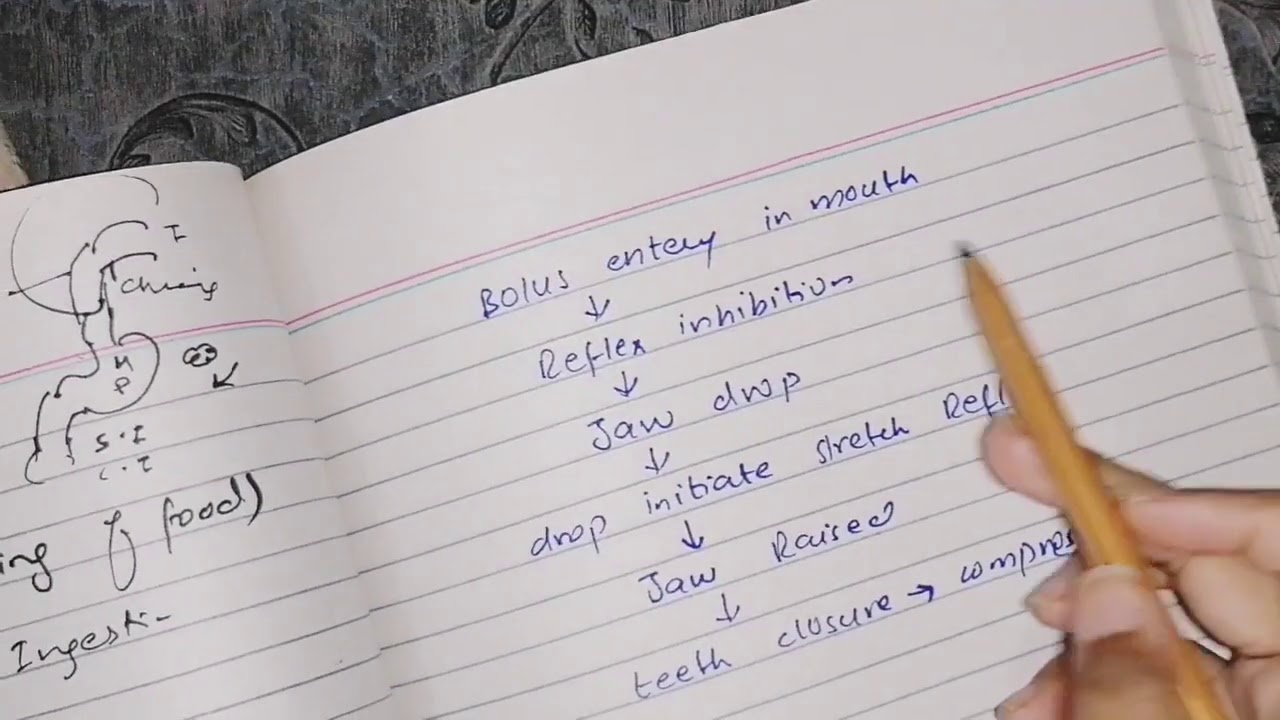 Bolus entery in mouth
↓
Reflex inhibition
↓
Jaw drop
↓
drop initiate stretch Refl
↓
Jaw Raised
↓
teeth closure → compres
I
M
P
S.I
ing of food)
Ingesti-